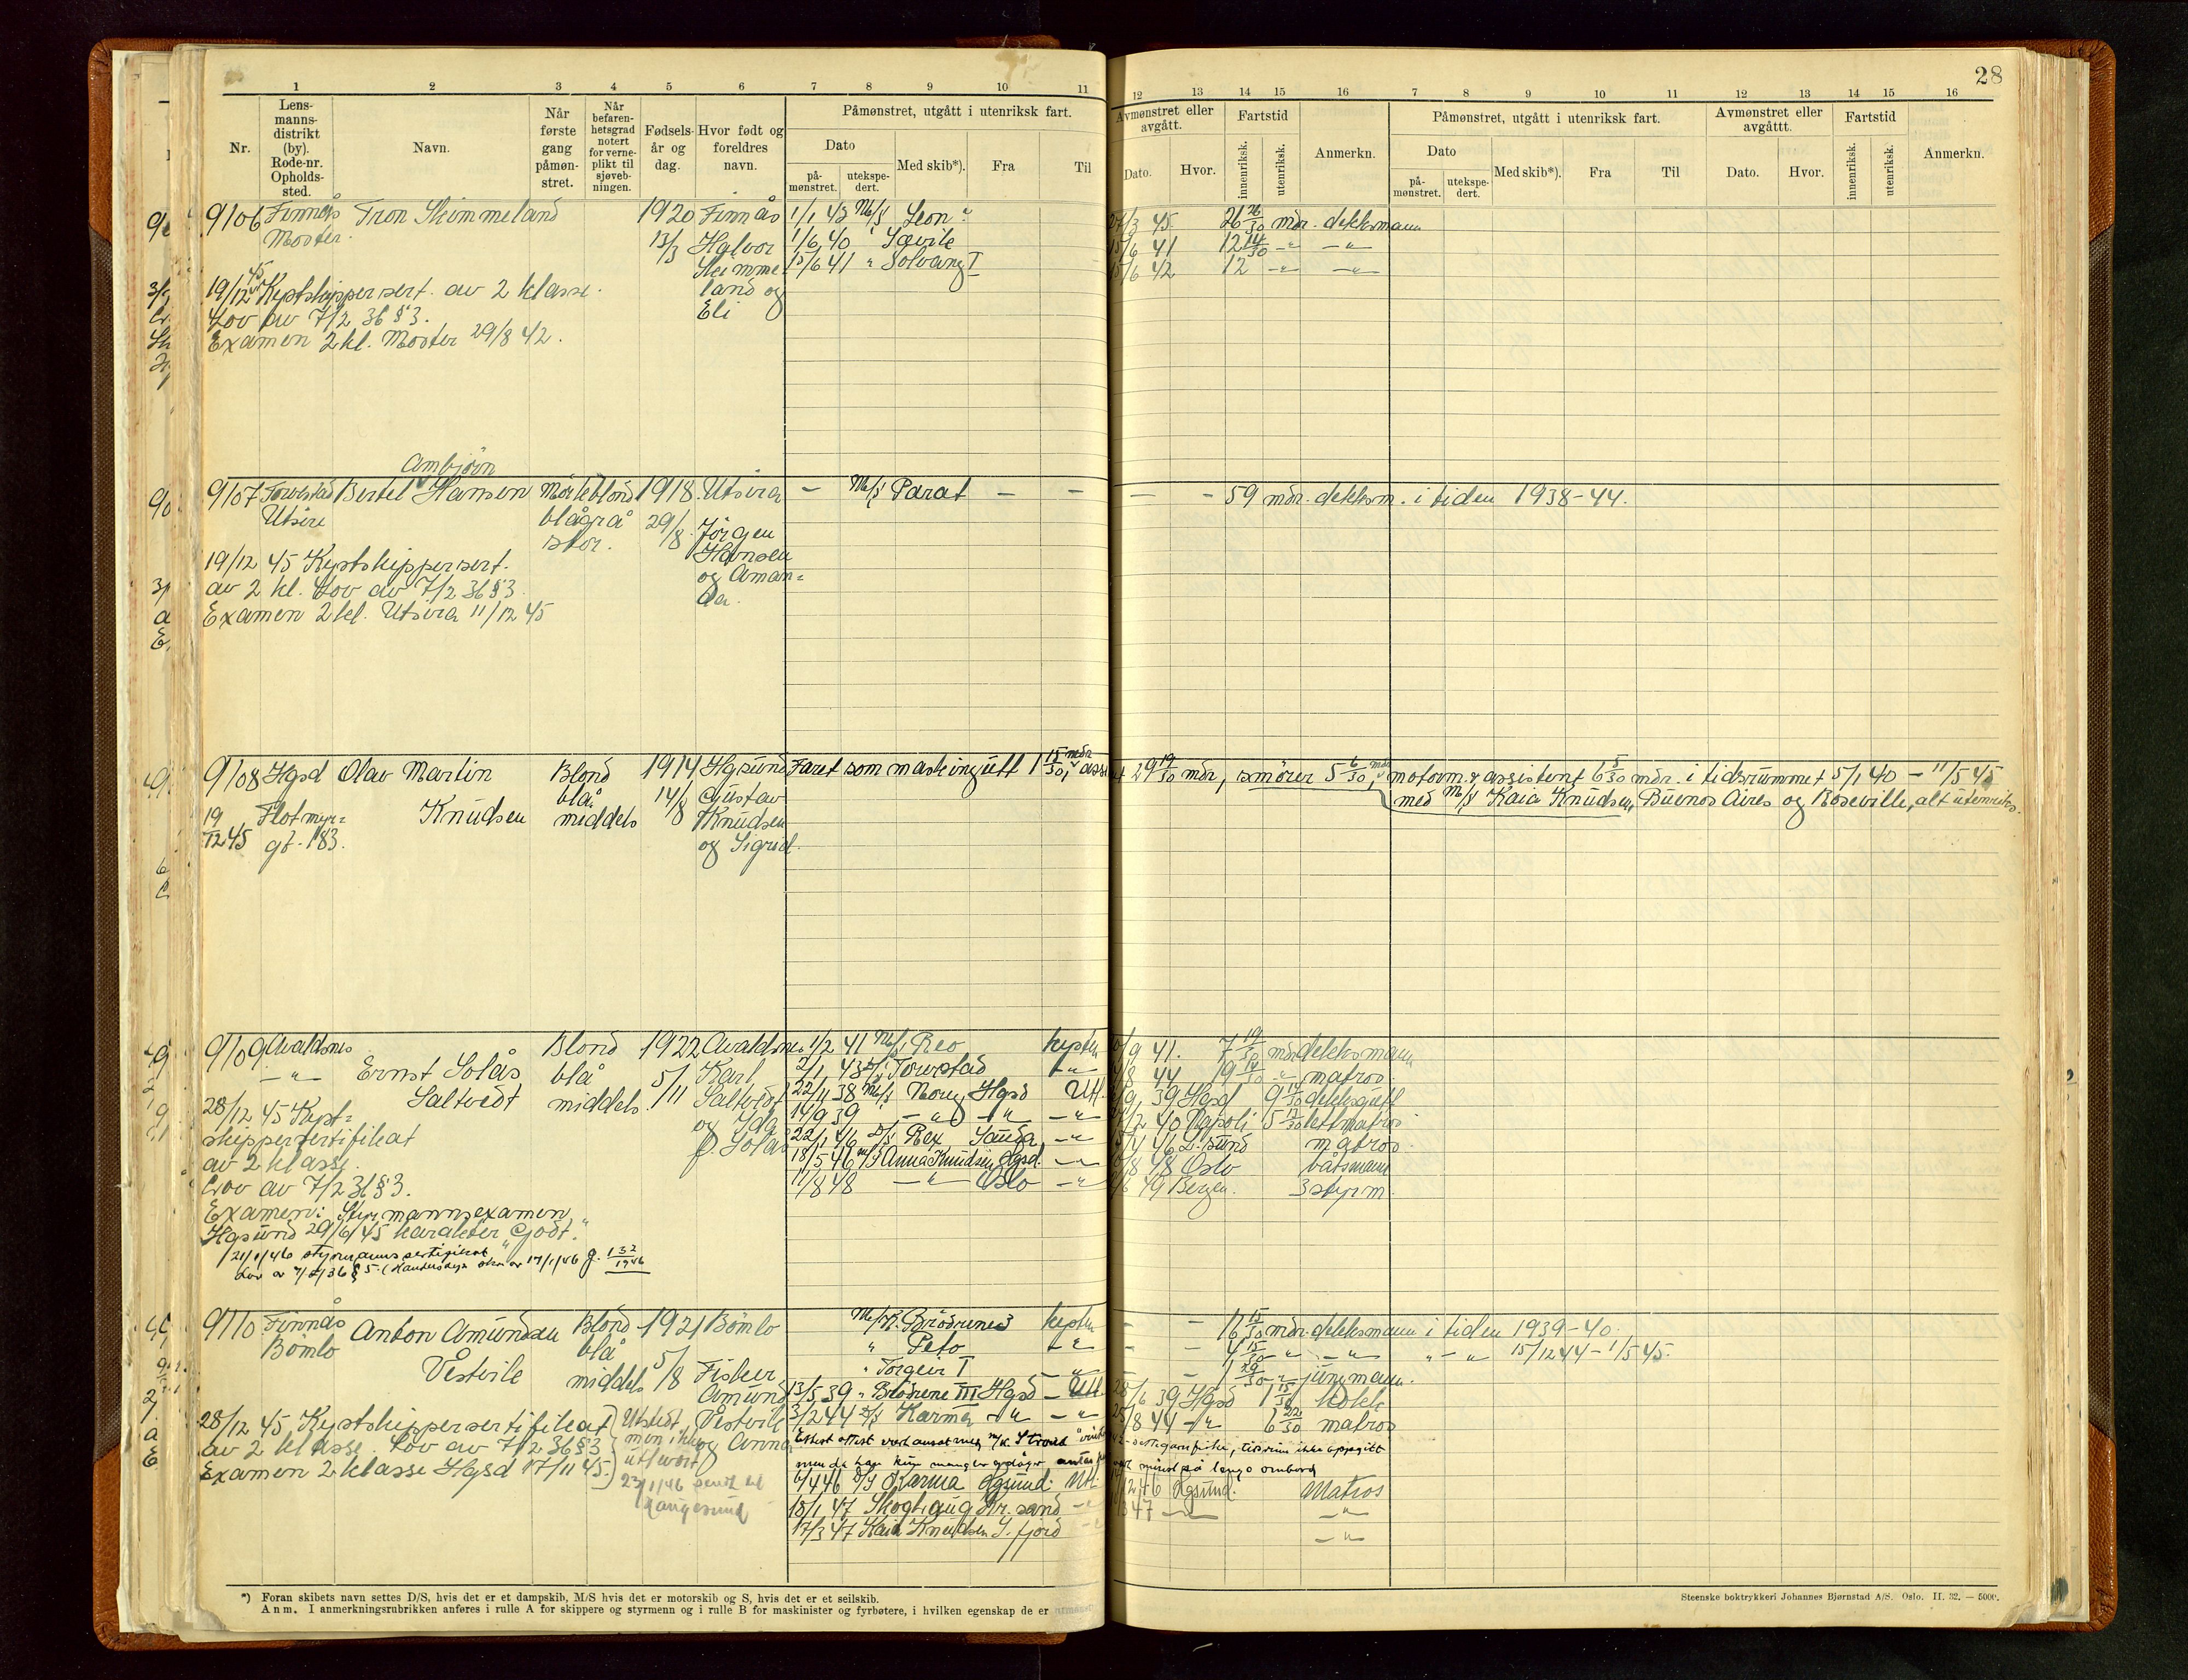 28
1 2 3 4 5 6 7 8 9 10 11
12 13 14 15 16 7 8 9 10 11 12 13 14 15 16
Nr.
Lens-
manns-
distrikt
(by).
Rode-nr.
Opholds-
sted.
Navn.
Når
første
gang
påmøn-
stret.
Når
befaren-
hetsgrad
notert
for verne-
plikt til
sjøveb-
ningen.
Fødsels-
år og
dag.
Hvor født og
foreldres
navn.
Påmønstret, utgått i utenriksk fart.
Dato
på-
mønstret.
utekspe-
dert.
Med skib*).
Fra
Til
Avmønstret eller
avgått.
Dato.
Hvor.
Fartstid
innenriksk.
utenriksk.
Anmerkn.
Påmønstret, utgått i utenriksk fart.
Dato
på-
mønstret.
utekspe-
dert.
Med skib*).
Fra
Til
Avmønstret eller
avgåttt.
Dato.
Hvor.
Fartstid
innenriksk.
utenriksk.
Anmerkn.
9106 Finnås Tron Skimmeland 1920 Finnås 1/1 43 M/S Leon 26 26/30 mdr. dekksmann
Moster. 13/3 Halvor 1/6 40 " Sævik 15/6 41 12 14/30 -"- -"-
Skimme- 15/6 41 " Solvang I 15/6 42 12 -"- -"-
19/12 45 Kystskippersert. av 2 klasse. land og
Lov av 7/2 36 §3. Eli
Examen 2 kl. Moster 29/8 42.
Ambjørn
9107 Torvestad Bertel Hansen Mørkeblond 1918 Utsira - M/S Parat - - - - 59 mdr. dekksm. i tiden 1938-44.
Utsire blågrå 29/8 Jörgen
stor. Hansen
19/12 45 Kystskippersert. og Aman=
av 2 kl. Lov av 7/2 36 §3. da.
Examen 2 kl. Utsira 11/12 45
9108 Hgsd Olav Martin Blond 1914 Hgsund Faret som maskingutt 1 15/30 mdr, 29 19/30 mdr, smörer 5 6/30 mdr, motorm. & assistent 6 5/30 mdr. i tidsrummet 5/1 40 - 11/5 45
blå 14/8 Gustav med M/S Kaia Knudsen, Buenos Aires og Roseville, alt utenriks.
19 Flotmyr= Knudsen middels Knudsen
12 45 gt. 183. og Sigrid.
9109 Avaldsnes Blond 1922 Avaldsnes 1/2 41 M/S Reo kysten 9 41. 7 19/30 mdr dekksmann
-"- Ernst Solås blå 5/11 Karl 2/1 43 D/S Torvestad -"- 8 44 19 14/30 -"- matros.
Saltvedt middels. Saltvedt 22/11 38 M/S Norey Hgsd Utl. 39 Hgsd 9 dekksgutt
28/12 45 Kyst= og Ida 14/9 39 -"- -"- -"- 2 40 Napoli 5 lettmatros
skippersertifikat f. Solås 22/1 46 D/S Rex Sauda -"- 46 L. sund matros.
av 2 klasse. 18/5 46 M/S Anna Knudsen Hgsd. -"- 8 48 Oslo båtsmann
Lov av 7/2 36 §3. 11/8 48 -"- Oslo -"- 49 Bergen. 3 styrm.
Examen: Styrmannsexamen
Hgsund 29/6/45 karakter "Godt."
21/1/46 styrmannssertifikat
Lov av 7/2/36 § 5. 17/1/46 132/1946
9110 Finnås Anton Amundsen Blond 1921 Bömlo M/K Brödrenes kysten - - 16 15/30 mdr. dekksmann i tiden 1939-40.
Bömlo blå 5/8 " Peto -"- - - 4 15/30 -"- -"- "-" 15/12 44 - 1/5 45.
Våstvik middels Fisker " Torgeir I -"- - - 1 29/30 -"- jungmann.
Amund 13/5 39 " Brödrene III Hgsd - Utl. 28/6 39 Hgsd 1 15/30 kokk
28/12 45 Kystskippersertifikat Utstedt, Våstvik 3/2 44 D/S Karmøy -"- -"- 25/8 44 -"- 6 22/30 matros
av 2 klasse. Lov av 7/2 36 §3 men ikke og Anna
Examen 2 klasse Hgsd 17/11 45. utlevert
23/1/46 sendt til 6/4 46 D/S Karma Hgsund. Utl. 12 46 Hgsund. Matros
Haugesund 18/1 47 Skoghaug Kr. sand -"- 3 47 -"- -"-
17/3 47 Kaia Knudsen S. fjord -"- -"-
*) Foran skibets navn settes D/S, hvis det er et dampskib, M/S hvis det er motorskib og S, hvis det er et seilskib.
Anm. I anmerkningsrubrikken anføres i rulle A for skippere og styrmenn og i rulle B for maskinister og fyrbøtere, i hvilken egenskap de er
Steenske boktrykkeri Johannes Bjørnstad A/S. Oslo. II. 32. — 5000.